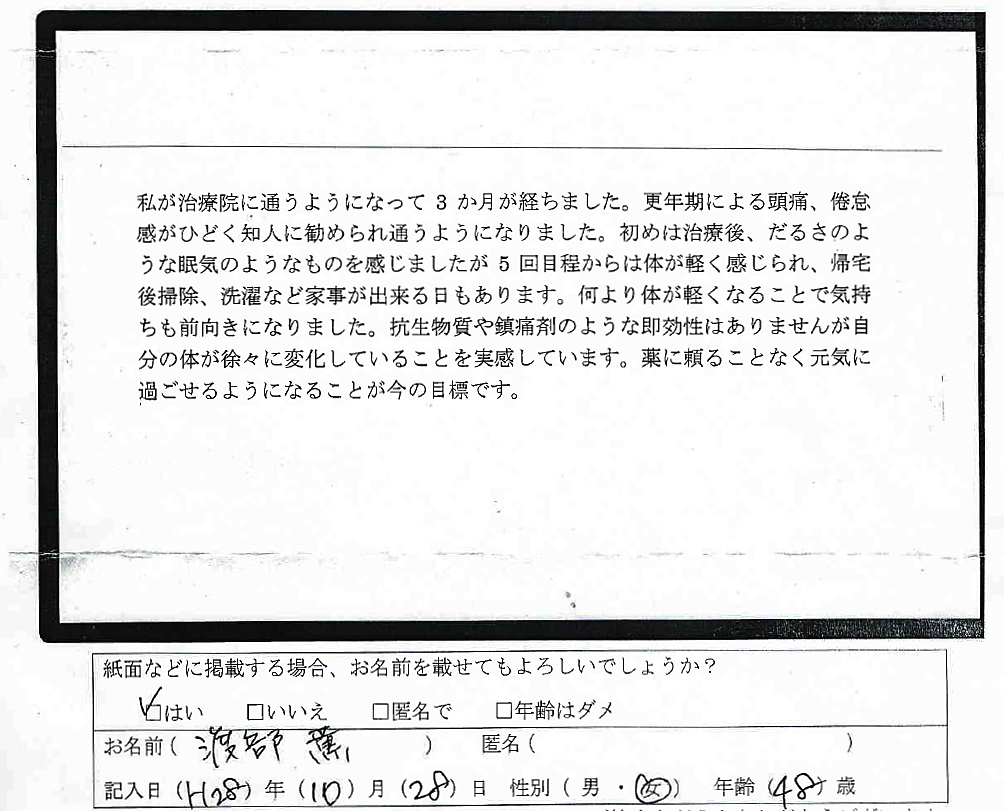 私が治療院に通うようになって 3 か月が経ちました。更年期による頭痛、倦怠
感がひどく知人に勧められ通うようになりました。初めは治療後、だるさのよ
うな眠気のようなものを感じましたが 5 回目程からは体が軽く感じられ、帰宅
後掃除、洗濯など家事が出来る日もあります。何より体が軽くなることで気持
ちも前向きになりました。抗生物質や鎮痛剤のような即効性はありませんが自
分の体が徐々に変化していることを実感しています。薬に頼ることなく元気に
過ごせるようになることが今の目標です。
紙面などに掲載する場合、お名前を載せてもよろしいでしょうか?
☑はい □いいえ □匿名で □年齢はダメ
お名前( 渡部 薫 ) 匿名( )
記入日(H28)年(10)月(28)日 性別( 男 ・ 女 ) 年齢(48)歳